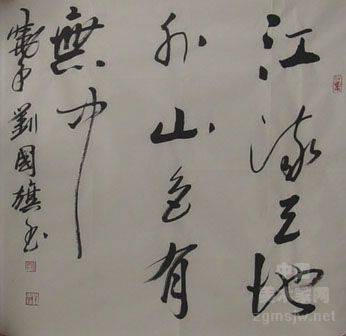 江流天地
外山色有
無中
劉國旗書
zgmsjw.net